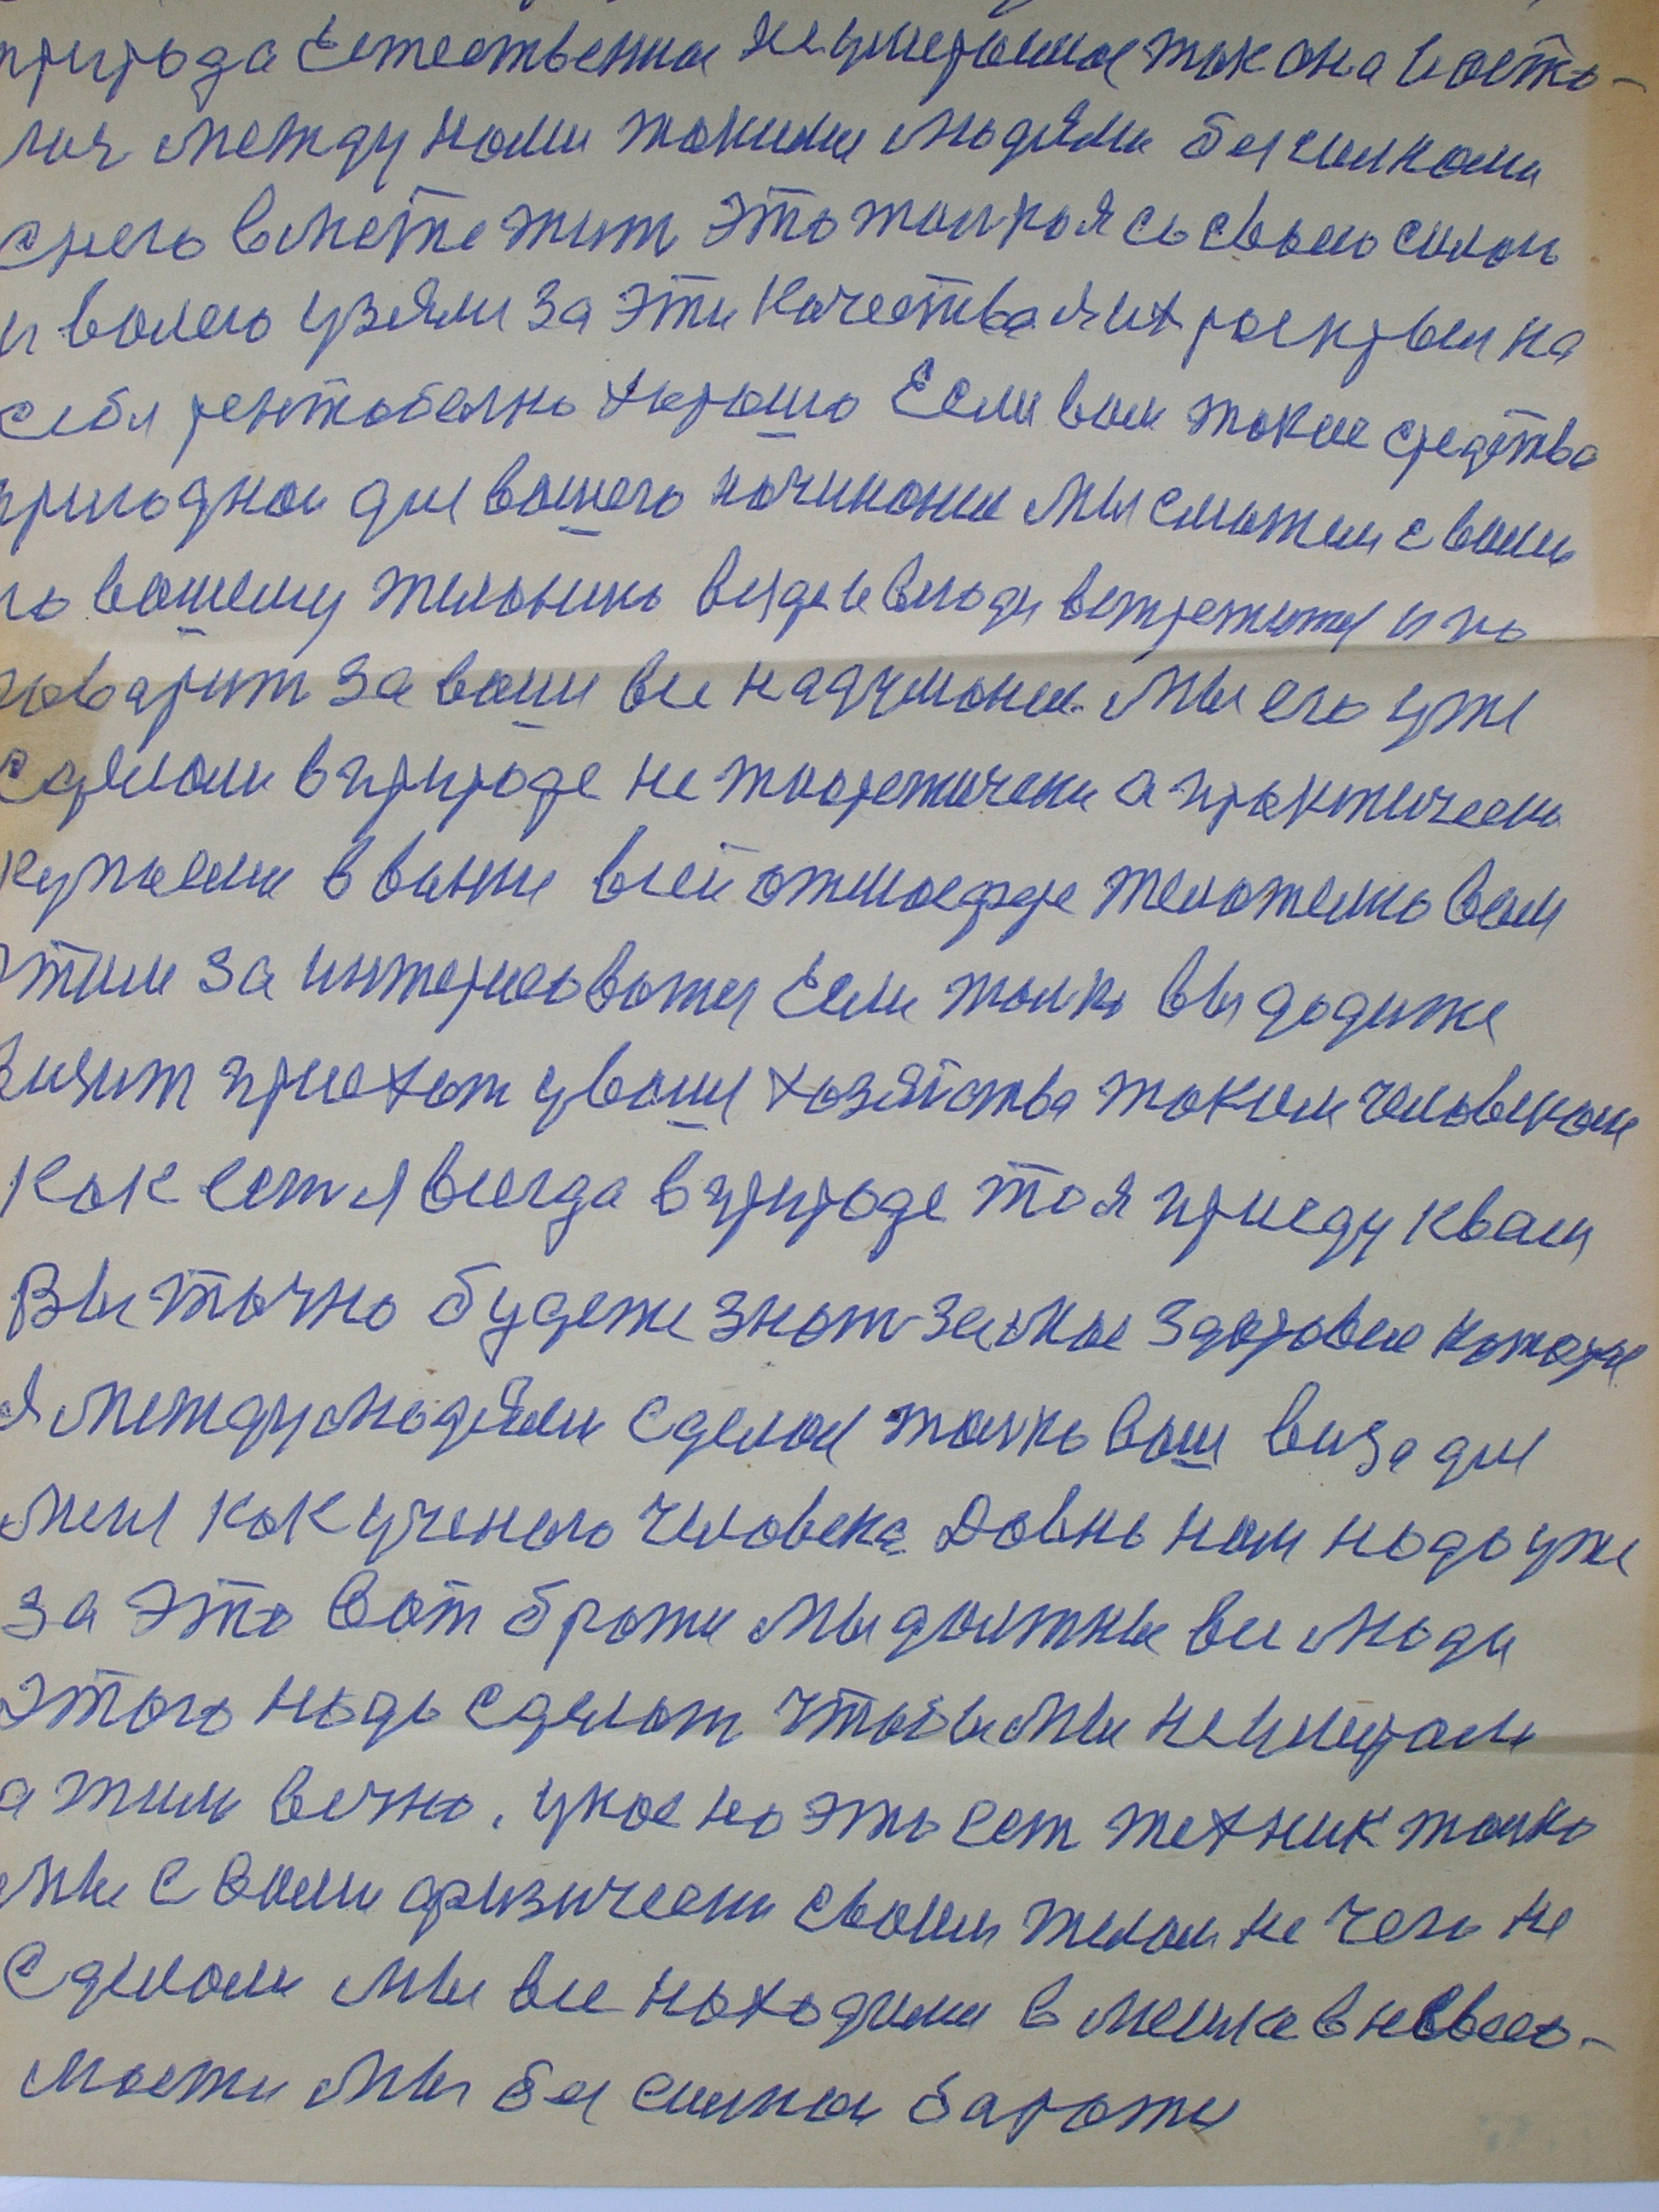 природа Естественная неумераемая так она воето-
лия между нами такими людями бессилными
снего вместе жит это толко я со своею силои
и волею узяли за эти качества я их роскрыл на
себя рентобелно харошо Если вам такие средства
пригоднои для вашего начинание мы сможем с вами
по вашему желанию везде и всюду встретится и по
гаварит за ваши все надумание. Мы его уже
сделали в природе не тиоретически а практически
купаемся в ванне всеи атмосфере желателно вам
этим за интересоватся Если толко вы дадите
визит приехат у ваши хозяйства таким человеком
Как ест я всегда в природе то я приеду к вам
Вы точно будете знат за мое здоровие которое
я между людями сделал толко ваш виза для
меня как ученого человека Давно нам надо уже
за это вот браться мы должны все люди
этого надо сделат чтобы мы не умерали
а жили вечно. у нас на это ест техник толко
мы с вами физически своим телом не чего не
сделали мы все находимся в мешке в невесо-
мости мы без силнои